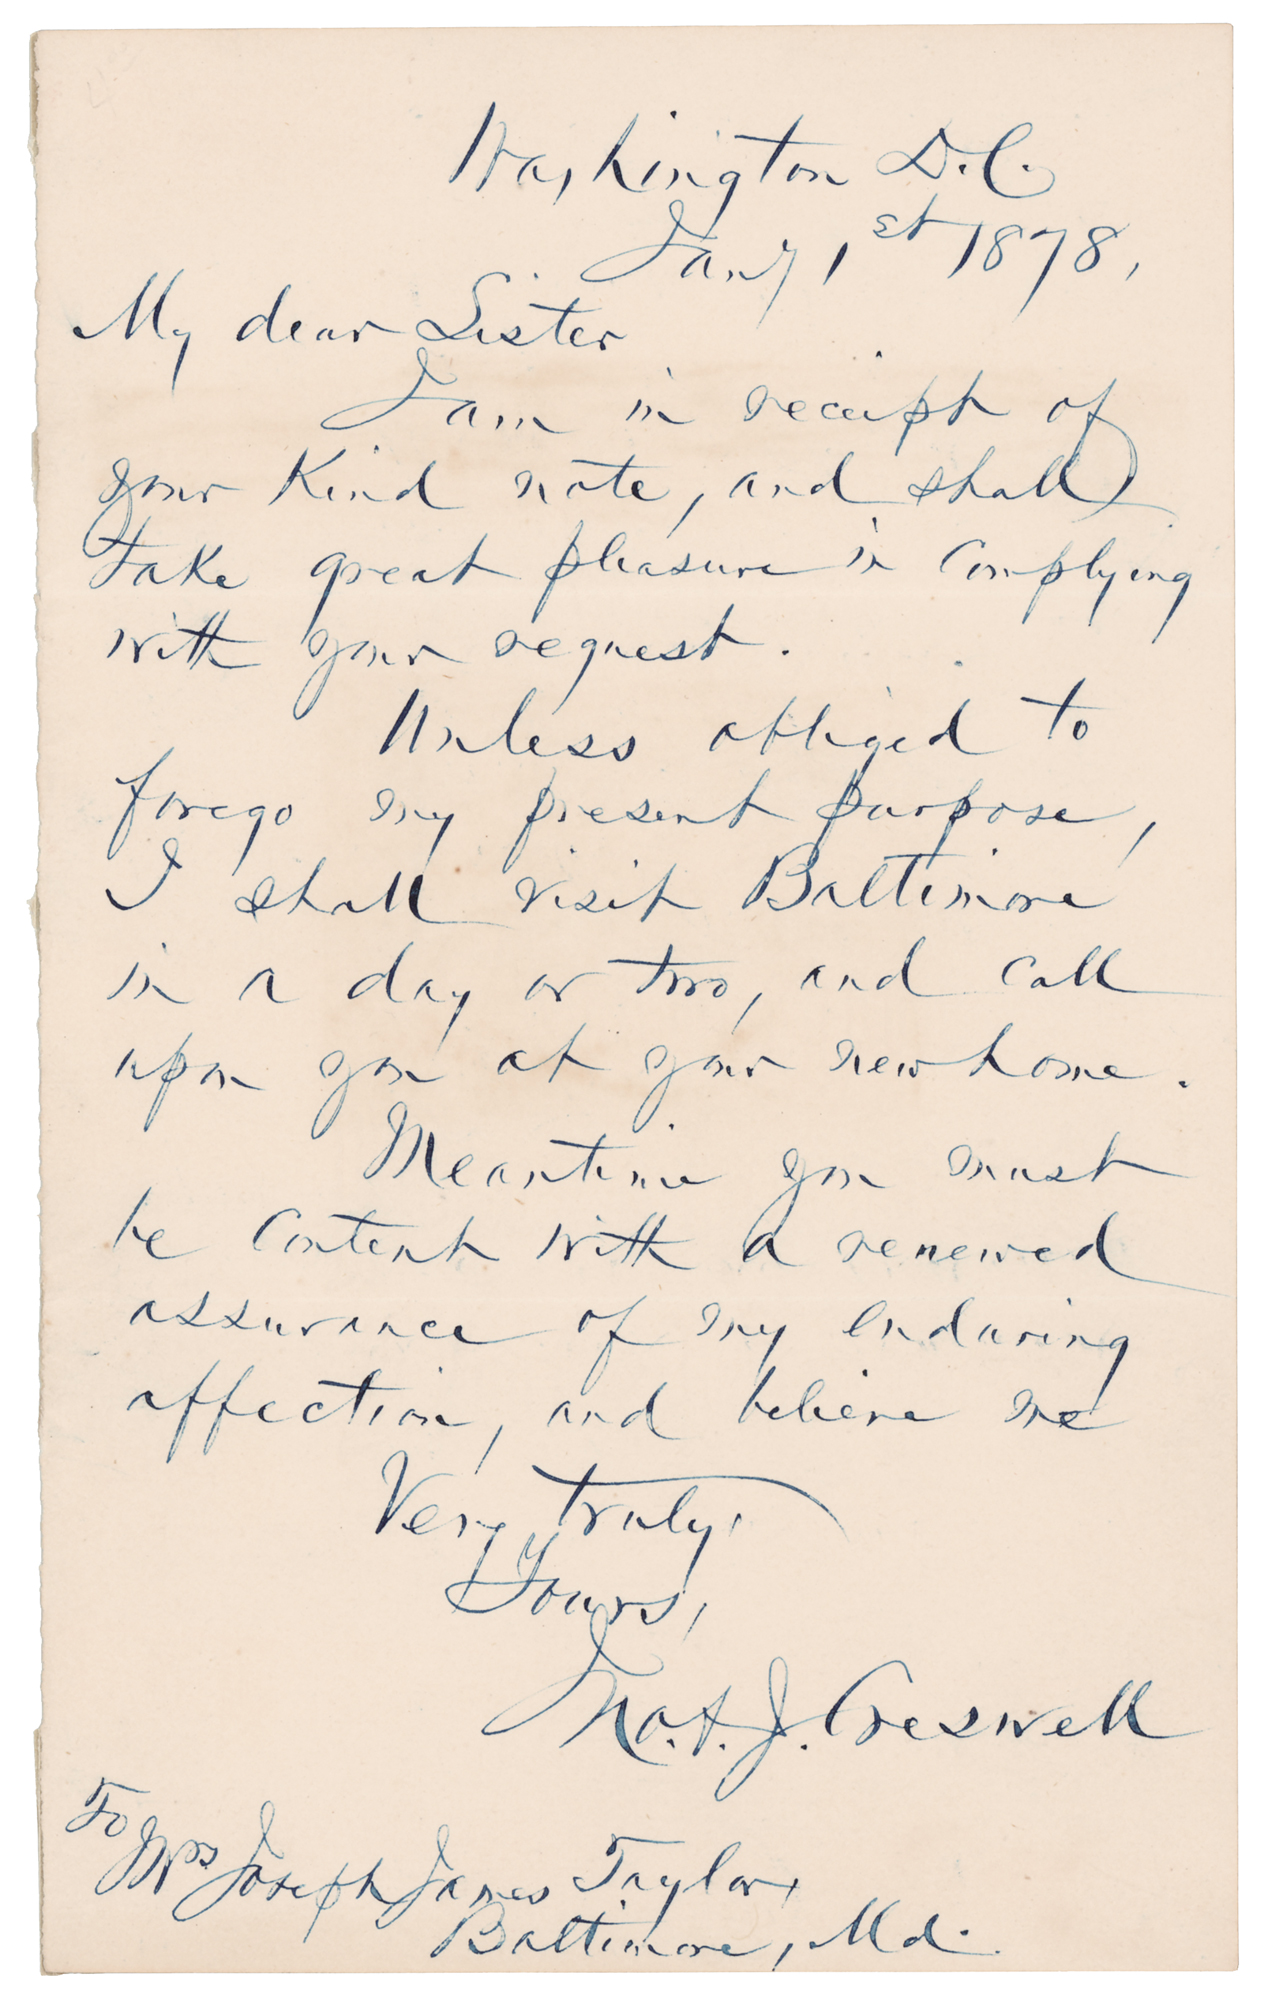 Washington D.C.
Jany 1st 1878,
My dear Sister
I am in receipt of
your kind note, and shall
take great pleasure in complying
with your request.
Unless obliged to
forego my present purpose,
I shall visit Baltimore
in a day or two, and call
upon you at your new home.
Meantime you must
be content with a renewed
assurance of my enduring
affection, and believe me
Very truly,
Yours,
Jno. A. J. Creswell
To
Mrs Joseph James Taylor,
Baltimore, Md.